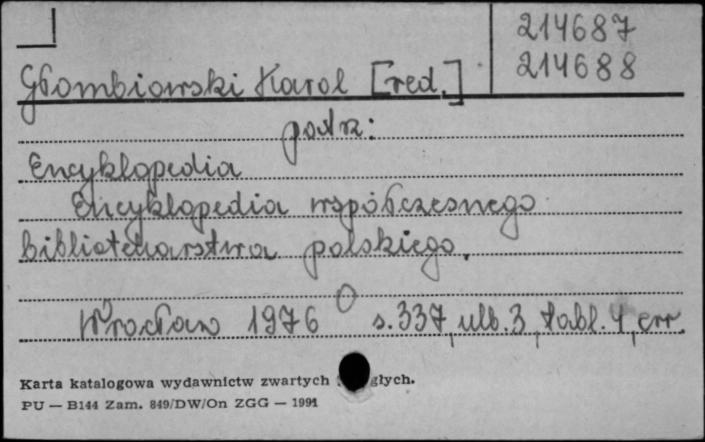 214687
214688
Głombiowski Karol [red.]
patrz:
Encyklopedia
Encyklopedia współczesnego
bibliotekarstwa polskiego.
Wrocław 1976 s. 337, ulb. 3, tabl. 4, err.
Karta katalogowa wydawnictw zwartych głych.
PU — B144 Zam. 849/DW/On ZGG — 1991